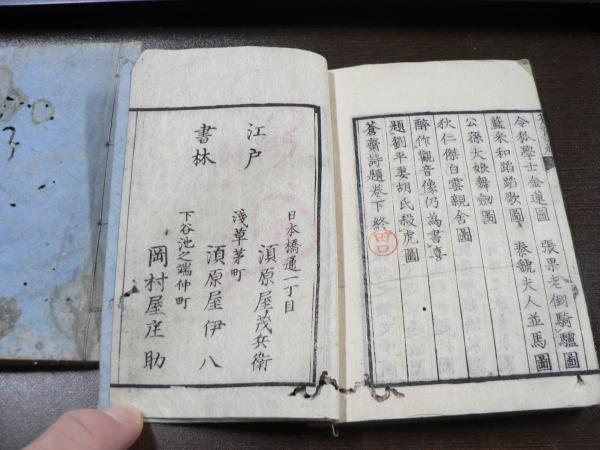 令狐學士金蓮圖　張果老倒騎驢圖
藍采和蹈踏歌圖　秦虢夫人並馬圖
公孫大娘舞劍圖
狄仁傑白雲親舍圖
醉作觀音像仍為書喜
題劉平妻胡氏殺虎圖
蒼齋詩題巻下終
江戸
書林
日本橋通一丁目
須原屋茂兵衛
淺草茅町
須原屋伊八
下谷池之端仲町
岡村屋庄助